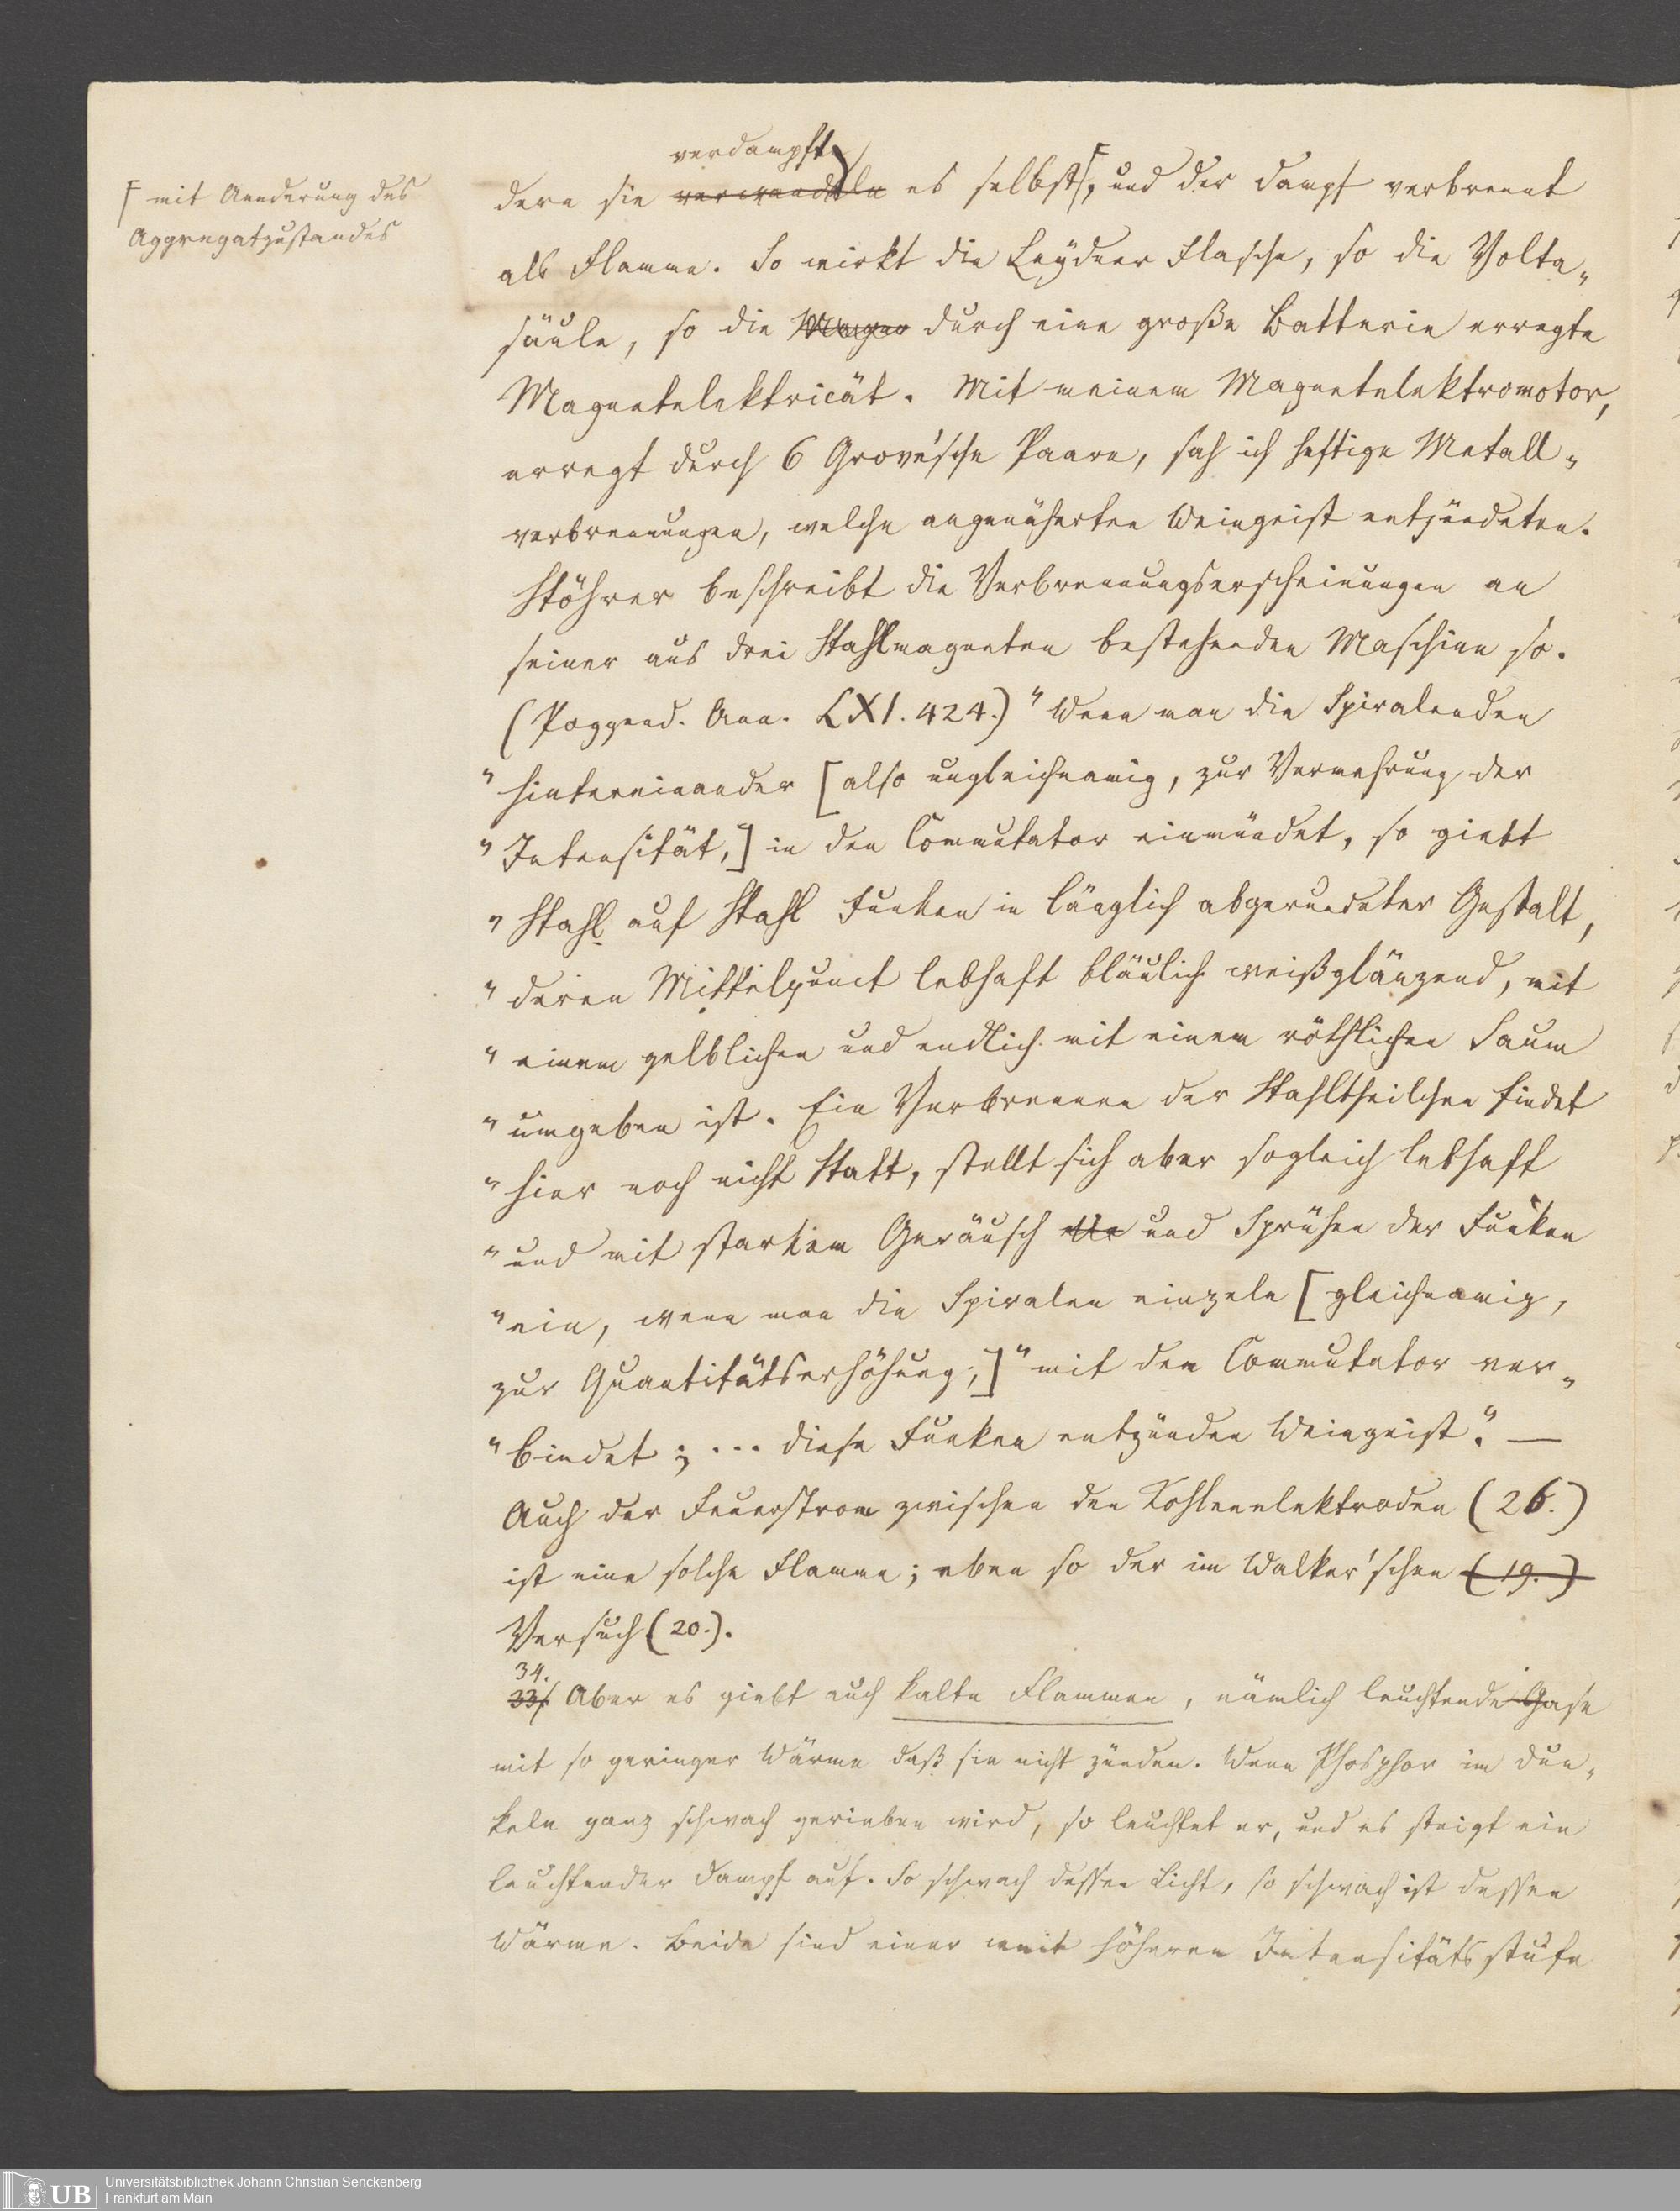 ⌈ mit Aenderung des
Aggregatzustandes
verdampft
dern sie verwandeln es selbst⌈, und der Dampf verbrennt
als Flamme. So wirkt die Leydner Flasche, so die Volta„
säule, so die Magne durch eine große Batterie erregte
Magnetelektricät. Mit meinem Magnetelektromotor,
erregt durch 6 Grove'sche Paare, sah ich heftige Metall„
verbrennungen, welche angenäherten Weingeist entzündeten.
Stöhrer beschreibt die Verbrennungserscheinungen an
seiner aus drei Stahlmagneten bestehenden Maschine so.
(Poggend. Ann. LXI. 424.) "Wenn man die Spiralenden
"hintereinander [also ungleichnamig, zur Vermehrung der
"Intensität,] in den Commutator einmündet, so giebt
"Stahl auf Stahl Funken in länglich abgerundeter Gestalt,
"deren Mittelpunct lebhaft bläulich weißglänzend, mit
"einem gelblichen und endlich mit einem röthlichen Saum
"umgeben ist. Ein Verbrennen der Stahltheilchen findet
"hier noch nicht Statt, stellt sich aber sogleich lebhaft
"und mit starkem Geräusch und Sprühen der Funken
"ein, wenn man die Spiralen einzeln [gleichnamig,
zur Quantitätserhöhung,] "mit dem Commutator ver„
"bindet; ... diese Funken entzünden Weingeist." —
Auch der Feuerstrom zwischen den Kohlenelektroden (26.)
ist eine solche Flamme; eben so der im Walker'schen (19.)
Versuch (20.).
34.
33. Aber es giebt auch kalte Flammen, nämlich leuchtende Gase
mit so geringer Wärme daß sie nicht zünden. Wenn Phosphor im Dun„
keln ganz schwach gerieben wird, so leuchtet er, und es steigt ein
leuchtender Dampf auf. So schwach dessen Licht, so schwach ist dessen
Wärme. Beide sind einer weit höheren Intensitätsstufe
UB Universitätsbibliothek Johann Christian Senckenberg
Frankfurt am Main